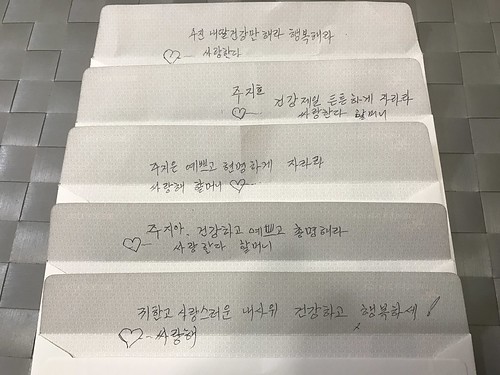 내딸건강만해라 행복해라
사랑한다
주지호 건강제일 튼튼하게 자라라
사랑한다 할머니
주지은 예쁘고 현명하게 자라라
사랑해 할머니
주지아. 건강하고 예쁘고 총명해라
사랑한다 할머니
귀한고 사랑스러운 내사위 건강하고 행복하세!
사랑해